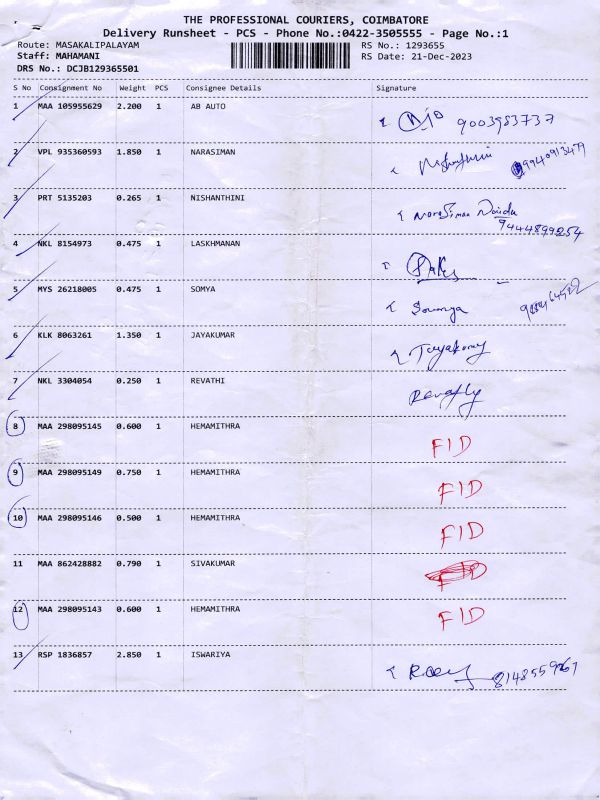 THE PROFESSIONAL COURIERS, COIMBATORE
Delivery Runsheet - PCS - Phone No.:0422-3505555 - Page No.:1
Route: MASAKALIPALAYAM RS No.: 1293655
Staff: MAHAMANI RS Date: 21-Dec-2023
DRS No.: DCJB129365501
S No Consignment No Weight PCS Consignee Details Signature
1 MAA 105955629 2.200 1 AB AUTO 9003983737
2 VPL 935360593 1.850 1 NARASIMAN 9940913479
3 PRT 5135203 0.265 1 NISHANTHINI Narasiman Naidu
9444899254
4 NKL 8154973 0.475 1 LASKHMANAN
5 MYS 26218005 0.475 1 SOMYA Sowmya
6 KLK 8063261 1.350 1 JAYAKUMAR
7 NKL 3304054 0.250 1 REVATHI
8 MAA 298095145 0.600 1 HEMAMITHRA FID
9 MAA 298095149 0.750 1 HEMAMITHRA FID
10 MAA 298095146 0.500 1 HEMAMITHRA FID
11 MAA 862428882 0.790 1 SIVAKUMAR
12 MAA 298095143 0.600 1 HEMAMITHRA FID
13 RSP 1836857 2.850 1 ISWARIYA